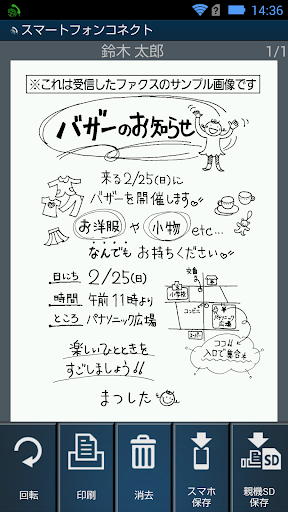 14:36
スマートフォンコネクト
鈴木 太郎
1/1
※これは受信したファクスのサンプル画像です
バザーのお知らせ
来る2/25(日)に
バザーを開催します
お洋服 や 小物 etc...
なんでも お持ちください
日にち 2/25(日)
時間 午前11時より
ところ パナソニック広場
小学校
コンビニ
パナソニック
広場
ココ!!
入口で集合
楽しいひとときを
すごしましょう!!
まつした
回転
印刷
消去
スマホ
保存
SD
親機SD
保存